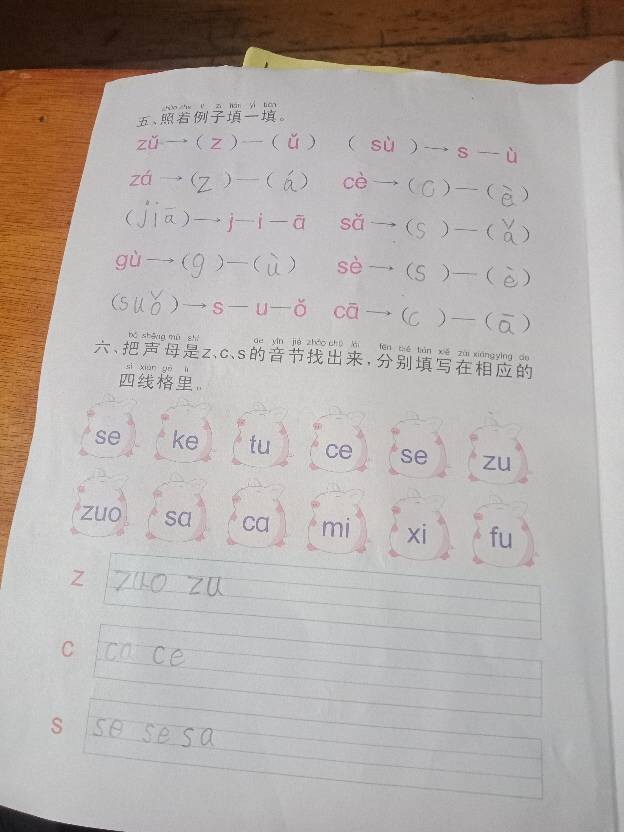 zhào zhe lì zi tián yì tián
五、照着例子填一填。
zǔ → ( z ) — ( ǔ ) ( sù ) → s — ù
zá → ( z ) — ( á ) cè → ( c ) — ( è )
( jiā ) → j — i — ā sǎ → ( s ) — ( ǎ )
gù → ( g ) — ( ù ) sè → ( s ) — ( è )
( suǒ ) → s — u — ǒ cā → ( c ) — ( ā )
bǎ shēng mǔ shì de yīn jié zhǎo chū lái fēn bié tián xiě zài xiāng yìng de
六、把声母是z、c、s的音节找出来，分别填写在相应的
sì xiàn gé lǐ
四线格里。
se ke tu ce se zu
zuo sa ca mi xi fu
z zuo zu
c ca ce
s se se sa